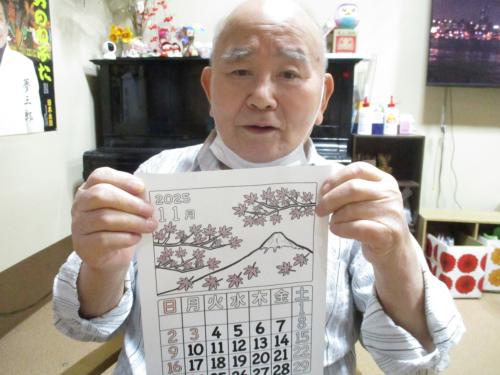 夢三郎
2025
11月
日 月 火 水 木 金 土
1
2 3 4 5 6 7 8
9 10 11 12 13 14 15
16 17 18 19 20 21 22
28 29